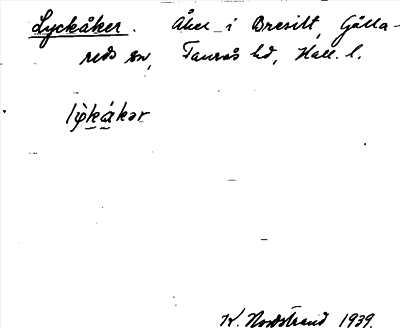 Lyckåker. Åker i Bresilt, Gälla-
reds sn, Faurås hd, Hall. l.
K. Nordstrand 1939.